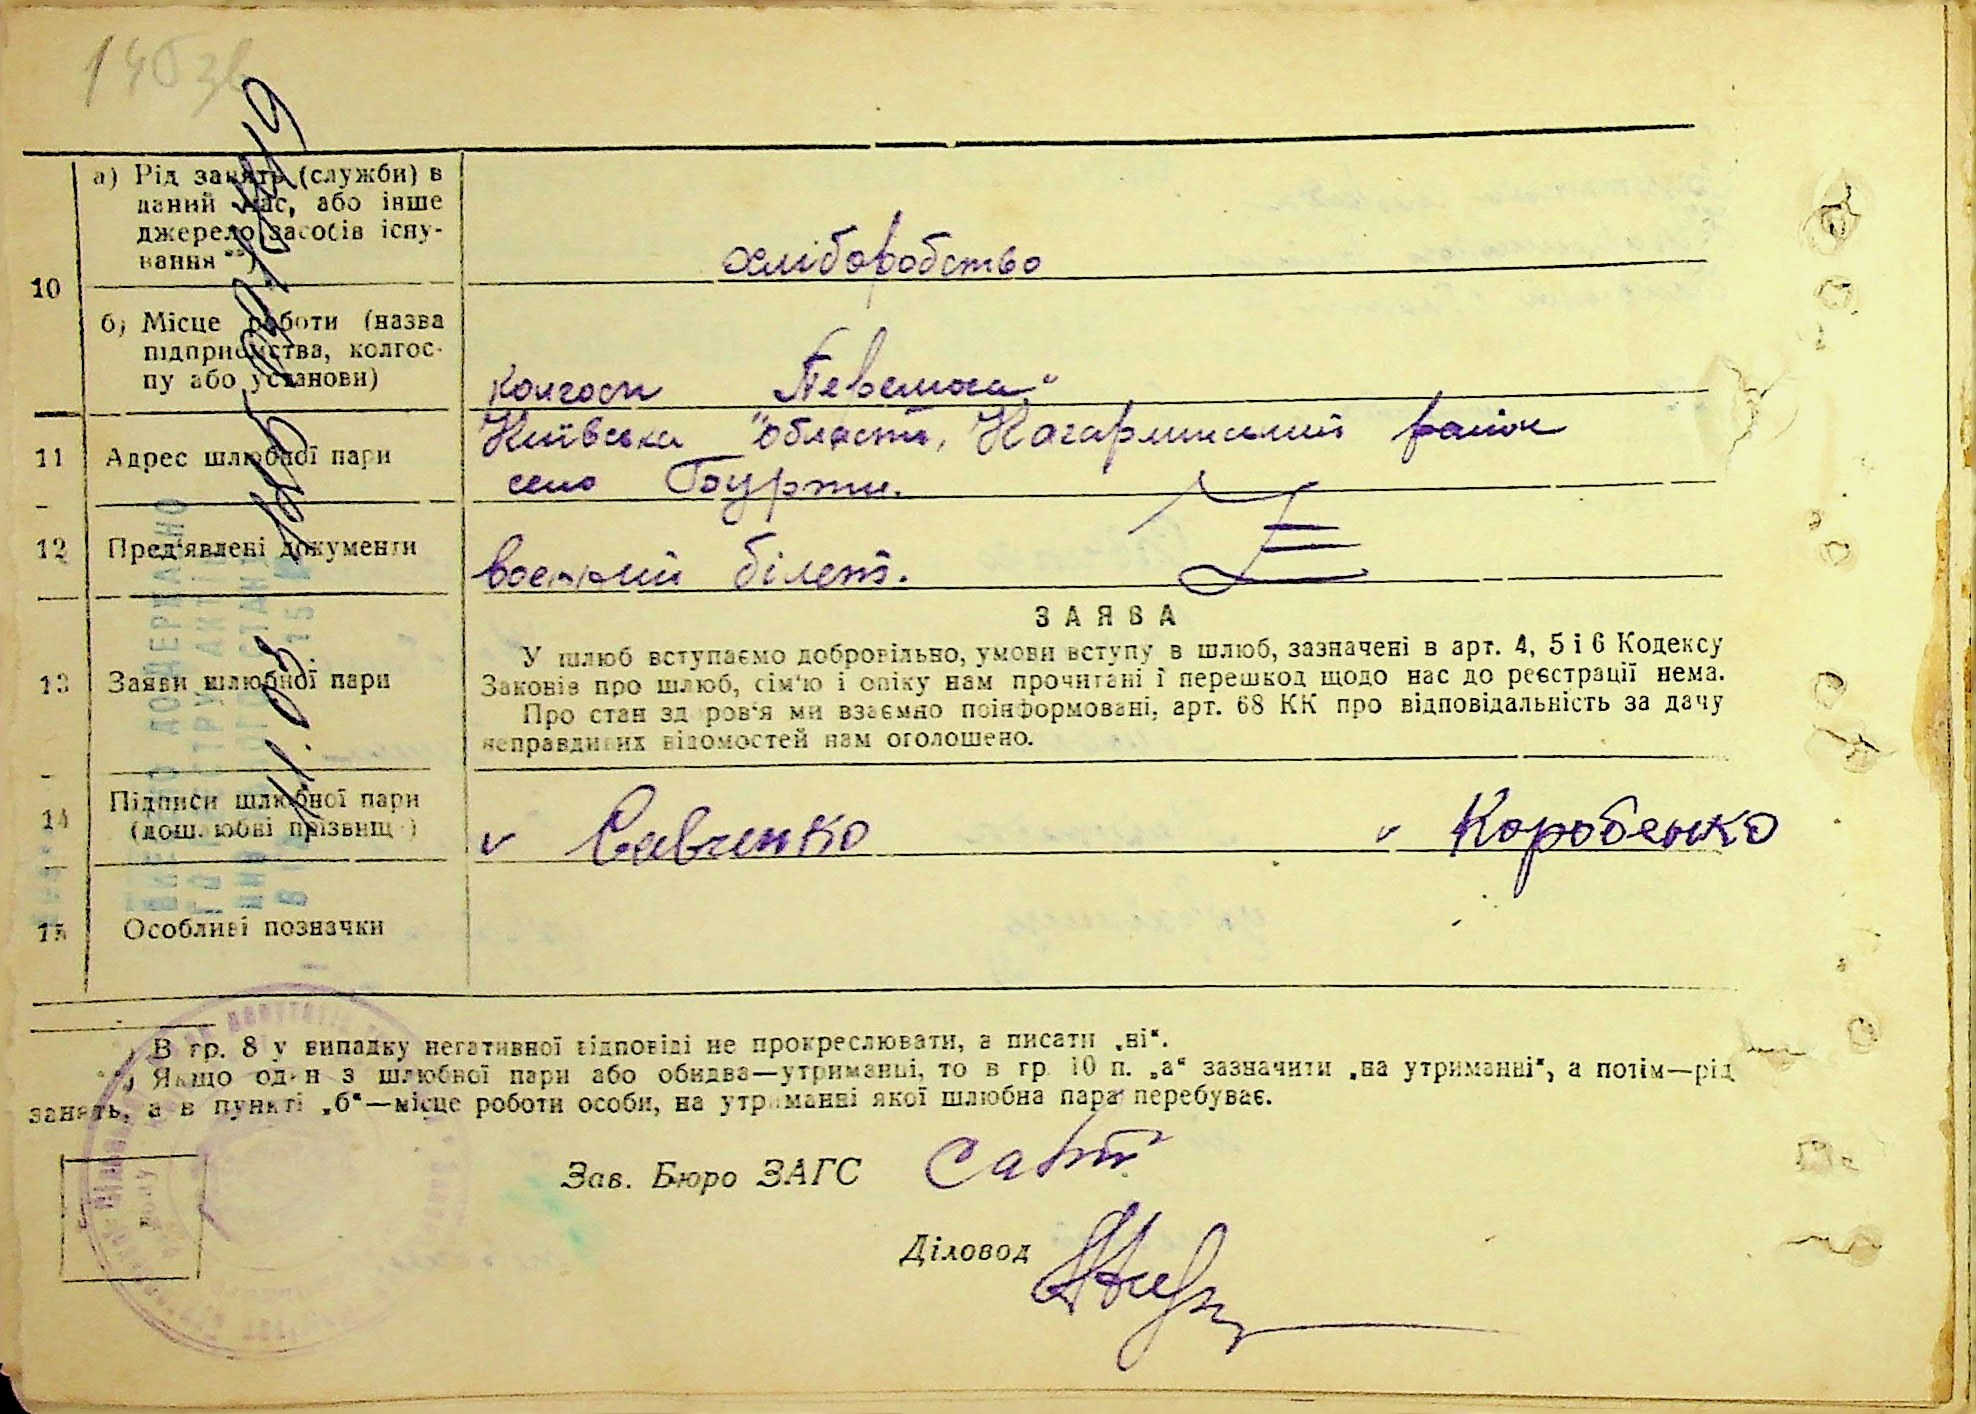 146 зв
10
а) Рід занять (служби) в
даний час, або інше
джерело засобів існу-
вання **)
хліборобство
б) Місце роботи (назва
підприємства, колгос-
пу або установи)
колгосп
11
Адрес шлюбної пари
Київська область, Кагарлицький район
село Бурти.
12
Пред'явлені документи
воєнний білет.
13
Заяви шлюбної пари
ЗАЯВА
У шлюб вступаємо добровільно, умови вступу в шлюб, зазначені в арт. 4, 5 і 6 Кодексу
Законів про шлюб, сім'ю і опіку нам прочитані і перешкод щодо нас до реєстрації нема.
Про стан здоров'я ми взаємно поінформовані, арт. 68 КК про відповідальність за дачу
неправдивих відомостей нам оголошено.
14
Підписи шлюбної пари
(дошлюбні прізвища)
v Савченко v Коробенко
15
Особливі позначки
*) В гр. 8 у випадку негативної відповіді не прокреслювати, а писати „ні“.
**) Якщо один з шлюбної пари або обидва—утриманці, то в гр 10 п. „а“ зазначити „на утриманні“, а потім—рід
занять, а в пункті „б“—місце роботи особи, на утриманні якої шлюбна пара перебуває.
Зав. Бюро ЗАГС
Діловод